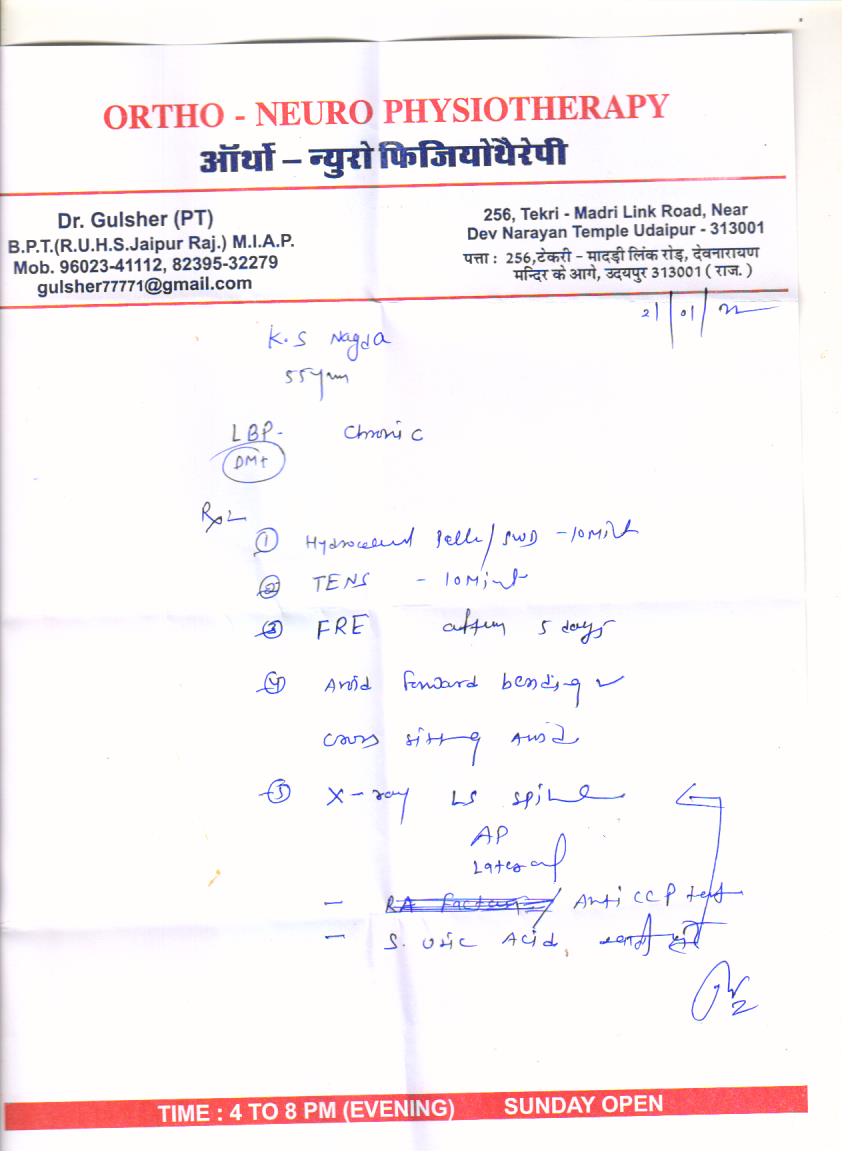 ORTHO - NEURO PHYSIOTHERAPY
ऑर्थो – न्युरो फिजियोथैरेपी
Dr. Gulsher (PT)
B.P.T.(R.U.H.S.Jaipur Raj.) M.I.A.P.
Mob. 96023-41112, 82395-32279
gulsher77771@gmail.com
256, Tekri - Madri Link Road, Near
Dev Narayan Temple Udaipur - 313001
पत्ता : 256,टेकरी – मादड़ी लिंक रोड़, देवनारायण
मन्दिर के आगे, उदयपुर 313001 ( राज. )
21/01/22
K.S Nagda
55
LBP- Chronic
DM+
Rx
① /SWD -10Mint
② TENS - 10Mint
③ FRE 5 days
④ Avoid forward bending
cross sitting avoid
⑤ X-ray LS spine
AP
Lateral
- RA factor / Anti CCP test
- S. Uric Acid,
TIME : 4 TO 8 PM (EVENING) SUNDAY OPEN